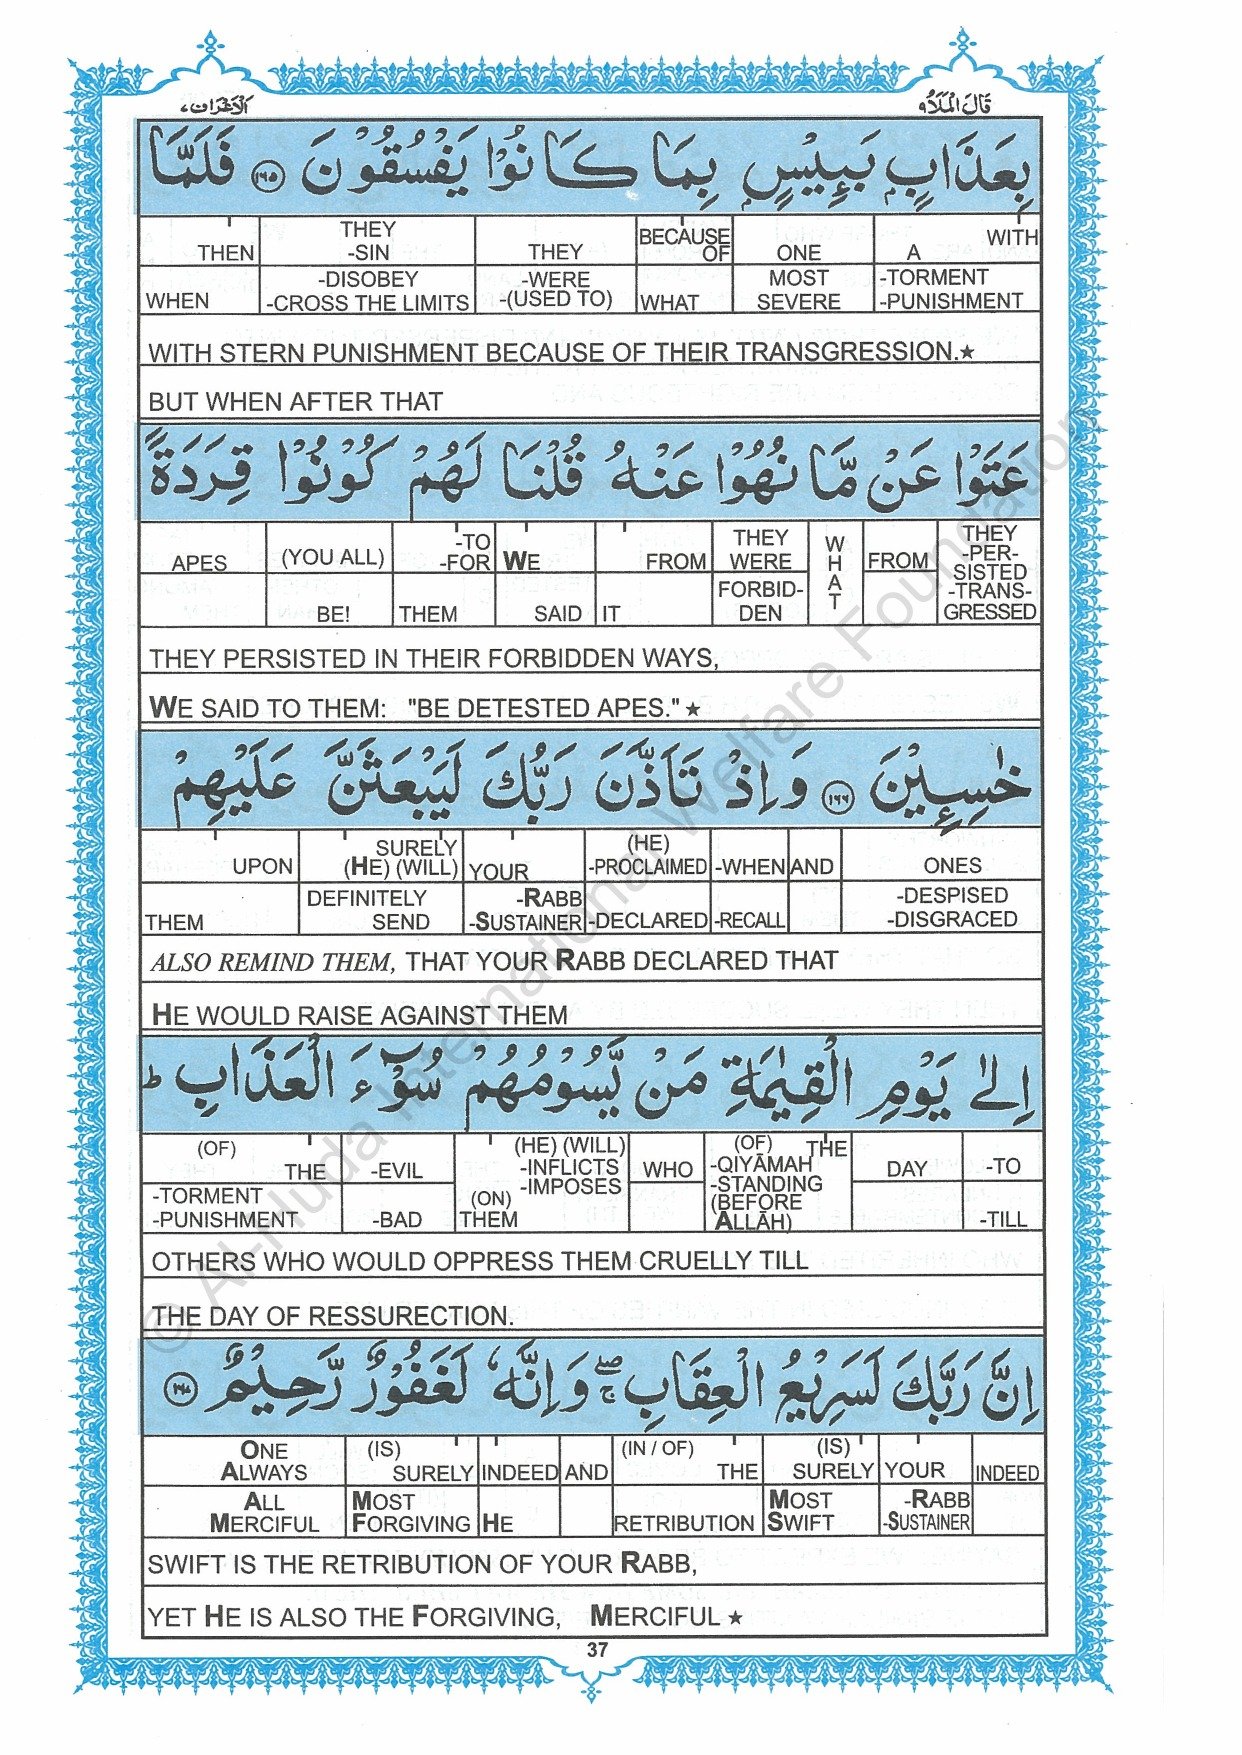 الاعراف ٧
قال الملأ ٩
بِعَذَابٍۭ بَـِٔيْسٍۭ بِمَا كَانُوْا يَفْسُقُوْنَ ۝١٦٥ فَلَمَّا
THEN THEY -SIN THEY BECAUSE OF ONE A WITH
WHEN -DISOBEY -CROSS THE LIMITS -WERE -(USED TO) WHAT MOST SEVERE -TORMENT -PUNISHMENT
WITH STERN PUNISHMENT BECAUSE OF THEIR TRANSGRESSION.★
BUT WHEN AFTER THAT
عَتَوْا عَنْ مَّا نُهُوْا عَنْهُ قُلْنَا لَهُمْ كُوْنُوْا قِرَدَةً
APES (YOU ALL) -TO -FOR WE FROM THEY WERE WHAT FROM THEY -PER- SISTED -TRANS- GRESSED
BE! THEM SAID IT FORBID- DEN
THEY PERSISTED IN THEIR FORBIDDEN WAYS,
WE SAID TO THEM: "BE DETESTED APES." ★
خٰسِـِٕيْنَ ۝١٦٦ وَاِذْ تَاَذَّنَ رَبُّكَ لَيَبْعَثَنَّ عَلَيْهِمْ
UPON SURELY (HE) (WILL) YOUR (HE) -PROCLAIMED -WHEN AND ONES
THEM DEFINITELY SEND -RABB -SUSTAINER -DECLARED -RECALL -DESPISED -DISGRACED
ALSO REMIND THEM, THAT YOUR RABB DECLARED THAT
HE WOULD RAISE AGAINST THEM
اِلٰى يَوْمِ الْقِيٰمَةِ مَنْ يَّسُوْمُهُمْ سُوْٓءَ الْعَذَابِ ؕ
(OF) THE -EVIL (HE) (WILL) -INFLICTS -IMPOSES WHO (OF) THE -QIYĀMAH -STANDING (BEFORE ALLĀH) DAY -TO
-TORMENT -PUNISHMENT -BAD (ON) THEM -TILL
OTHERS WHO WOULD OPPRESS THEM CRUELLY TILL
THE DAY OF RESSURECTION.
اِنَّ رَبَّكَ لَسَرِيْعُ الْعِقَابِ ۖۚ وَاِنَّهٗ لَغَفُوْرٌ رَّحِيْمٌ ۝١٦٧
ONE ALWAYS (IS) SURELY INDEED AND (IN / OF) THE (IS) SURELY YOUR INDEED
ALL MERCIFUL MOST FORGIVING HE RETRIBUTION MOST SWIFT -RABB -SUSTAINER
SWIFT IS THE RETRIBUTION OF YOUR RABB,
YET HE IS ALSO THE FORGIVING, MERCIFUL ★
37
© Al-Huda International Welfare Foundation